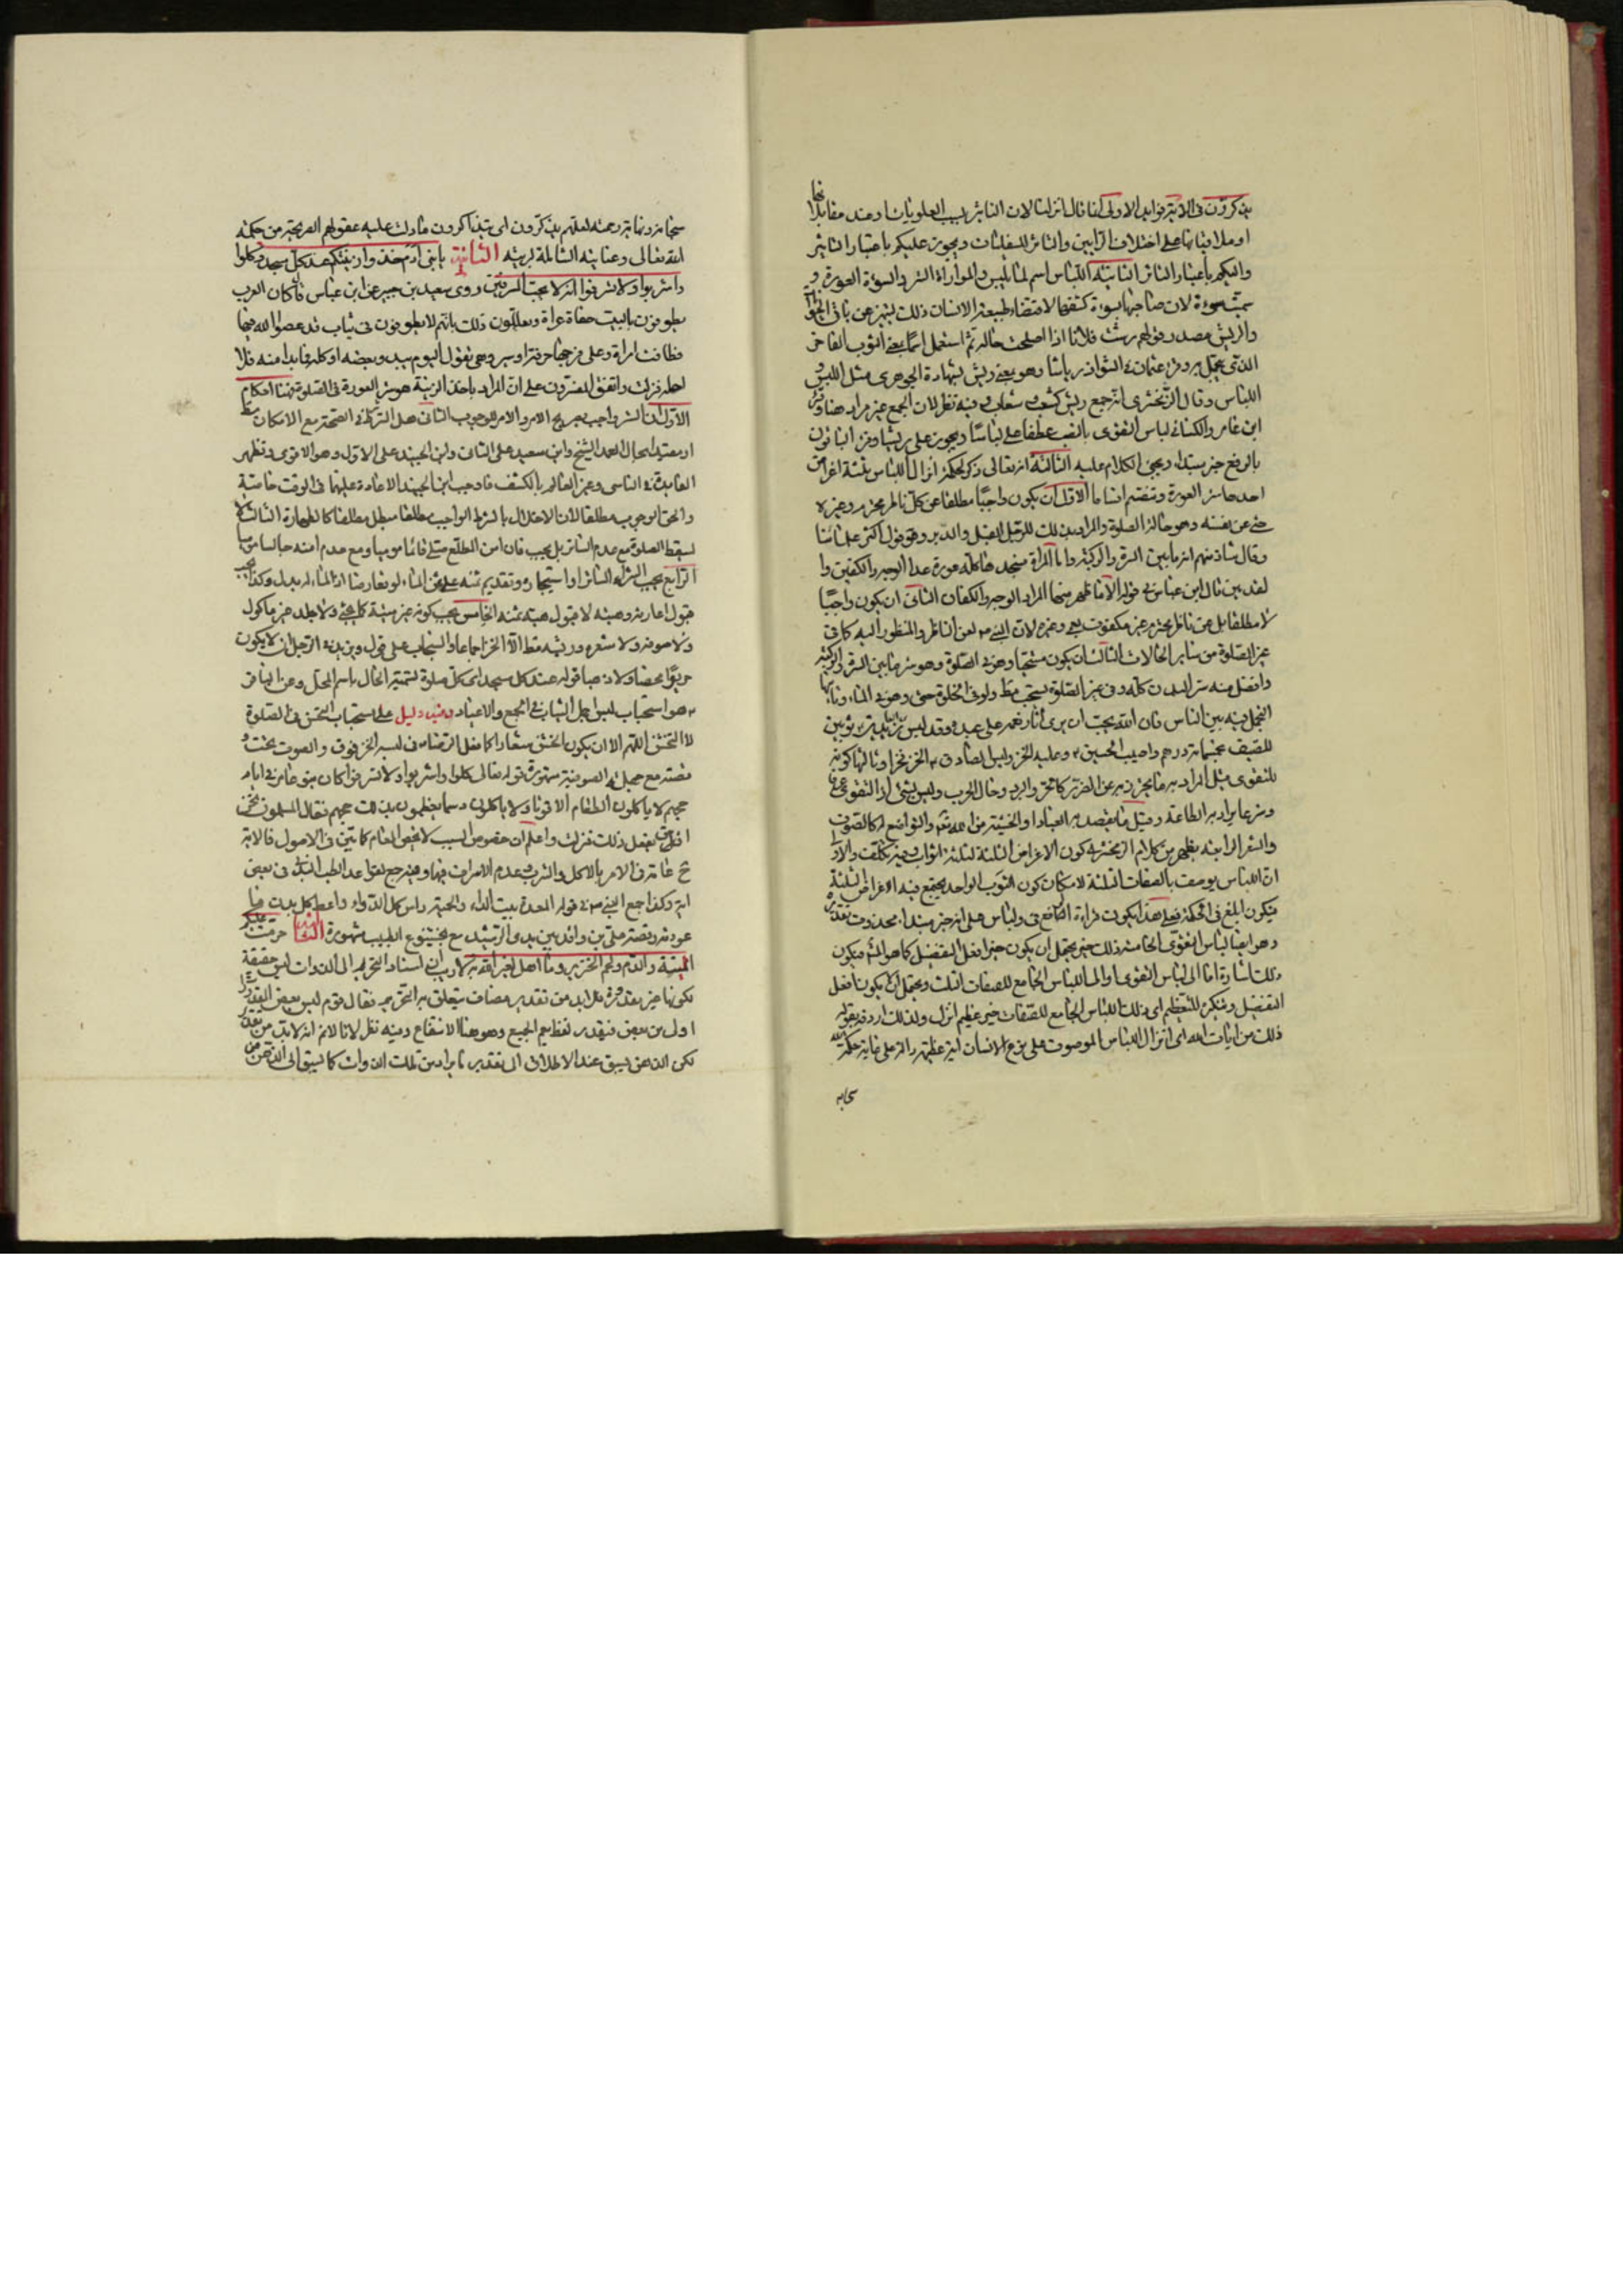 يذكرون في الآية فوايد الاولى انما قال انزلنا لان التأثير بسبب العلويات او عند مقابلاتها
او ملاقياتها على اختلاف الرأيين والتأثر للسفليات ويجوز عليكم باعتبار التأثير
واليكم باعتبار التأثر الثانية اللباس اسم لما يلبس والمواراة الستر والسوءة العورة
سميت سوءة لان صاحبها يسوءه كشفها لاقتضاء طبيعة الانسان ذلك لتميزه عن باقي
والريش مصدر وقولهم رشت فلانا اذا اصلحت حاله ثم استعمل اسما بمعنى الثوب الفاخر
الذي يتجمل به وقرء عثمان في الشواذ رياشا وهو بمعنى ريش بشهادة الجوهري مثل اللبس و
اللباس وقال الزمخشري انه جمع ريش كشعب وشعاب وفيه نظر لان الجمع غير مراد هنا وقرء
ابن عامر والكسائي لباس التقوى بالنصب عطفا على لباسا ويجوز على ريشا وقرء الباقون
بالرفع خبر مبتداء ويجئ الكلام عليه الثالثة انه تعالى ذكر لحكمة انزال اللباس ثلثة اغراض
احدها ستر العورة وينقسم اقساما الاول ان يكون واجبا مطلقا عن كل ناظر محترم وغيره
حتى عن نفسه وهو حالة الصلوة والمراد بذلك للرجل القبل والدبر وهو قول اكثر علمائنا
وقال شاذ منهم انه ما بين السرة والركبة واما المرأة فجسدها كله عورة عدا الوجه والكفين و
لقد بين قال ابن عباس في قوله الا ما ظهر منها المراد الوجه والكفان الثاني ان يكون واجبا
لا مطلقا بل عن ناظر محترم غير مكفوف بعمى وغيره لان النبي لعن الناظر والمنظور اليه كما في
غير الصلوة من ساير الحالات الثالث ان يكون مستحبا وهو في الصلوة وهو ستر ما بين السرة والركبة
وافضل منه ستر البدن كله وفي غير الصلوة يستحب مط ولو في الخلوة حتى وهو في الماء وثانيها
التجمل فيه بين الناس فان الله يحب ان يرى آثار نعمه على عبده وقد لبس زين العابدين ثوبين
للصيف بخمسمائة درهم واصيب الحسين وعليه الخز ولبس الصادق الخز وثالثها كونه
للتقوى قيل المراد به ما يحترز به عن الضرر كالحر والبرد وحال الحرب وليس بشئ اذ التقوى عرفا
وشرعا يراد به الطاعة وقيل ما يقصد به العبادة والخشية من الله تعالى والتواضع له كالصوف
والشعر الرابعة يظهر من كلام الزمخشري كون الاغراض الثلثة لثلثة اثواب وفيه تكلف والاولى
ان اللباس يوصف بالصفات الثلثة لامكان كون الثوب الواحد يجتمع فيه الاغراض الثلثة
فيكون ابلغ في الحكمة فعلى هذا يكون قراءة الرافع في ولباس على انه خبر مبتداء محذوف تقديره
وهو ايضا لباس التقوى الخامسة ذلك خير يحتمل ان يكون خير افعل التفضيل كما هو المشهور فيكون
ذلك اشارة اما الى لباس التقوى او الى اللباس الجامع للصفات الثلث ويحتمل ان لا يكون افعل
التفضيل وتنكيره للتعظيم اي ذلك اللباس الجامع للصفات خير عظيم انزل ولذلك اردفه بقوله
ذلك من آيات الله اي انزال اللباس الموصوف على نوع الانسان آية عظيمة دالة على غاية حكمة الله
سبحانه
سبحانه ونهاية رحمته لعلهم يذكرون اي يتذاكرون ما دلت عليه عقولهم الصريحة من حكمة
الله تعالى وعنايته الشاملة لبريته الثانية يا بني آدم خذوا زينتكم عند كل مسجد وكلوا
واشربوا ولا تسرفوا انه لا يحب المسرفين روى سعيد بن جبير عن ابن عباس قال كان العرب
يطوفون بالبيت حفاة عراة ويعللون ذلك بانهم لا يطوفون في ثياب قد عصوا الله فيها
فطافت امراة وعلى فرجها خرقة او سير وهي تقول اليوم يبدو بعضه او كله فما بدا منه فلا
احله فنزلت واتفق المفسرون على ان المراد باخذ الزينة هو ستر العورة في الصلوة وهنا احكام
الاول ان الستر واجب بصريح الامر والامر للوجوب الثاني هل الستر كذا في الصحة مع الامكان مط
او مقيد بحال العمد الشيخ وابن سعيد على الثاني وابن الجنيد على الاول وهو الاقوى وتظهر
الفائدة في الناسي وغير العالم بالكشف فاوجب ابن الجنيد الاعادة عليهما في الوقت خاصة
والحق الوجوب مطلقا لان الاخلال بالشرط الواجب مطلقا مبطل مطلقا كالطهارة الثالث لا
يسقط الصلوة مع عدم الساتر بل يجب فان امن المطلع صلى قائما موميا ومع عدم امنه جالسا موميا
الرابع يجب شراء الساتر او استيجاره وتقديم ثمنه على ثمن الماء لو تعارضا اذ الماء له بدل وكذا يجب
قبول اعارته وهبته لا قبول هبة ثمنه الخامس يجب كونه غير ميتة كما يجئ ولا جلد غير ماكول
ولا صوفه ولا شعره وريشه مط الا الخز اجماعا والسنجاب على قول ويزيد في الرجل ان لا يكون
حريرا محضا ولا ذهبا قوله عند كل مسجد اي كل صلوة لتسمية الحال باسم المحل وعن الباقر
هو استحباب لبس اجمل الثياب في الجمع والاعياد وفيه دليل على استحباب التحسن في الصلوة
لا التخشن اللهم الا ان يكون الخشن شعارا كما فعل الرضا من لبسه الخز فوق والصوف تحت و
قصته مع جهلة الصوفية مشهورة قوله تعالى كلوا واشربوا ولا تسرفوا كان بنو عامر في ايام
حجهم لا ياكلون الطعام الا قوتا ولا ياكلون دسما يعظمون بذلك حجهم فقال المسلمون نحن
احق بفعل ذلك فنزلت واعلم ان خصوص السبب لا يخص العام كما تبين في الاصول فالآية
ح عامة في الامر بالاكل والشرب وعدم الاسراف فيها وفيه رجع لقواعد الطب البدني في نصف
آية وكذا جمع النبي في قوله المعدة بيت الداء والحمية راس كل الدواء واعط كل بدن ما
عودته وقصة علي بن واقد بين يدي الرشيد مع بختيشوع الطبيب مشهورة الثالثة حرمت عليكم
الميتة والدم ولحم الخنزير وما اهل لغير الله به لا ريب ان اسناد التحريم الى الذوات ليس حقيقة
لكونها غير مقدورة فلا بد من تقدير مضاف يتعلق به التحريم فقال قوم ليس بعض التقديرات
اولى من بعض فيقدر لفظ يعم الجميع وهو هنا الانتفاع وفيه نظر لانا لا نم انه لا بد من
لكن الذهن يسبق عند الاطلاق الى تقدير ما يراد من تلك الذوات كما يسبق الى الذهن من